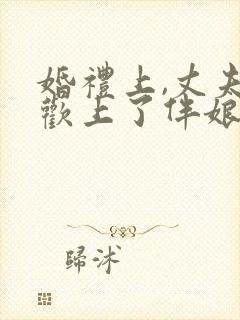 婚禮上,丈夫
歡上了伴娘
歸沭